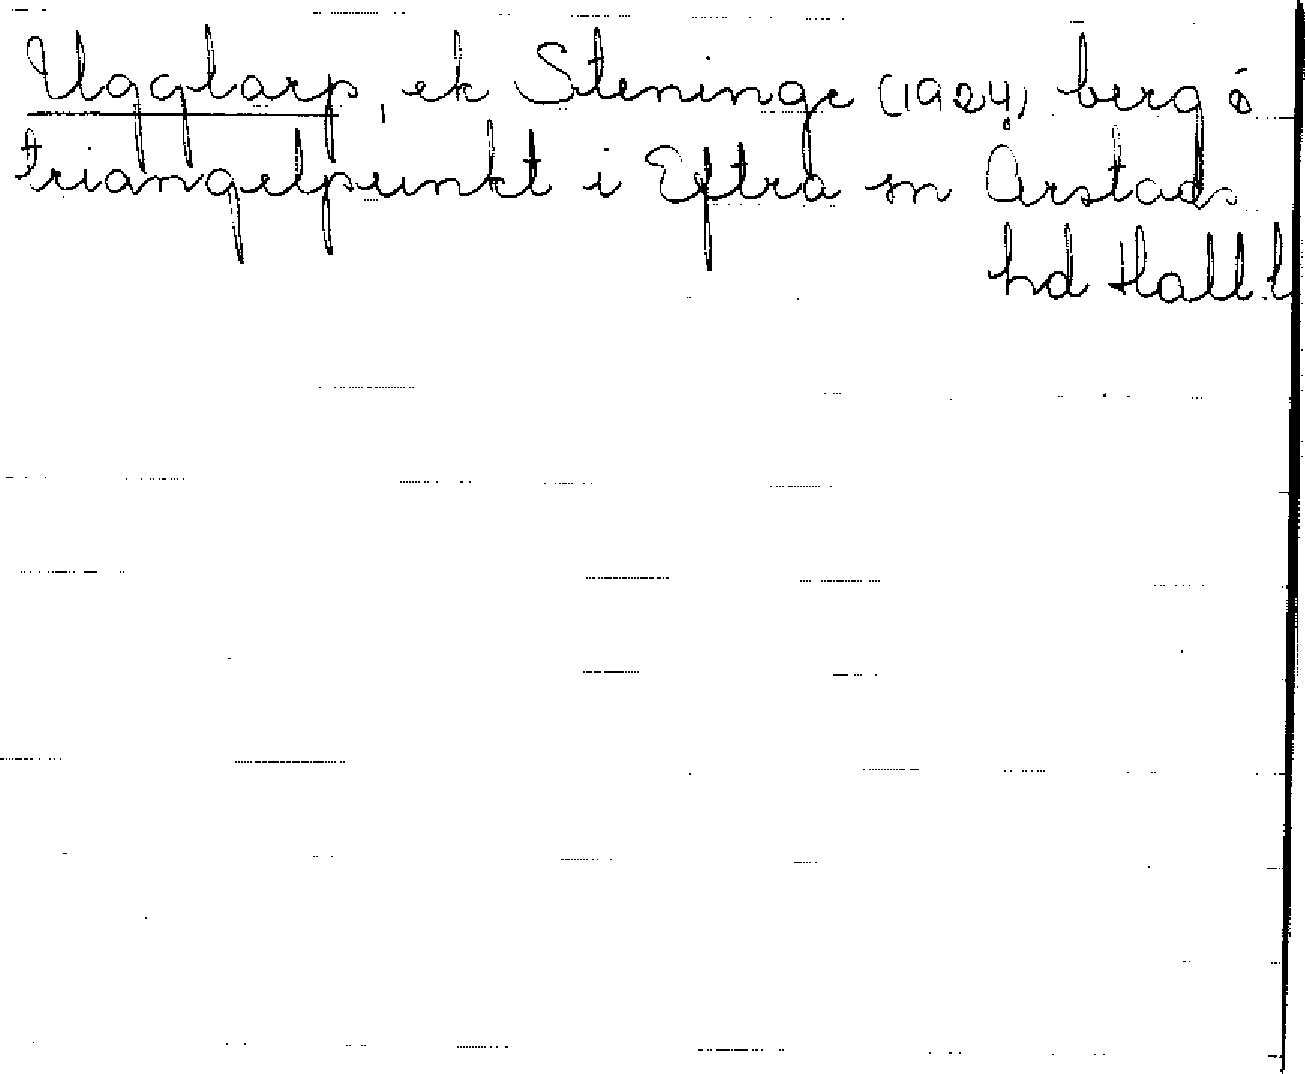 Ugglarp, ek Steninge (1924) berg o
triangelpunkt i Eftra sn Årstads
hd Hall.l